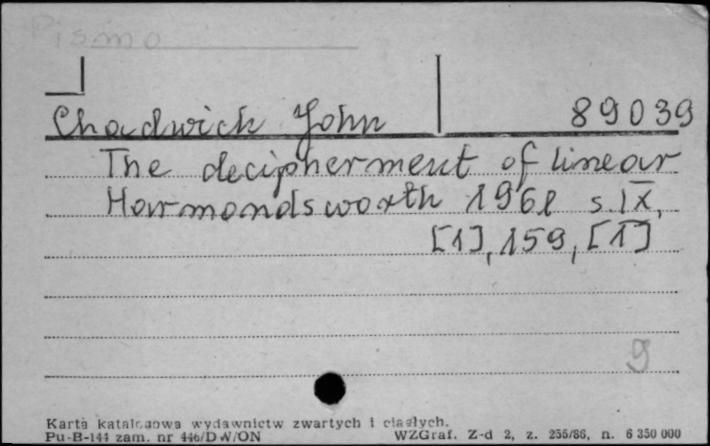 Pismo
Chadwick John 89039
The decipherment of linear
Harmondsworth 1961 s. IX,
[1], 159, [1]
9
Karta katalogowa wydawnictw zwartych i ciągłych.
Pu-B-144 zam. nr 446/DW/ON WZGraf. Z-d 2, z. 255/86, n. 6 350 000